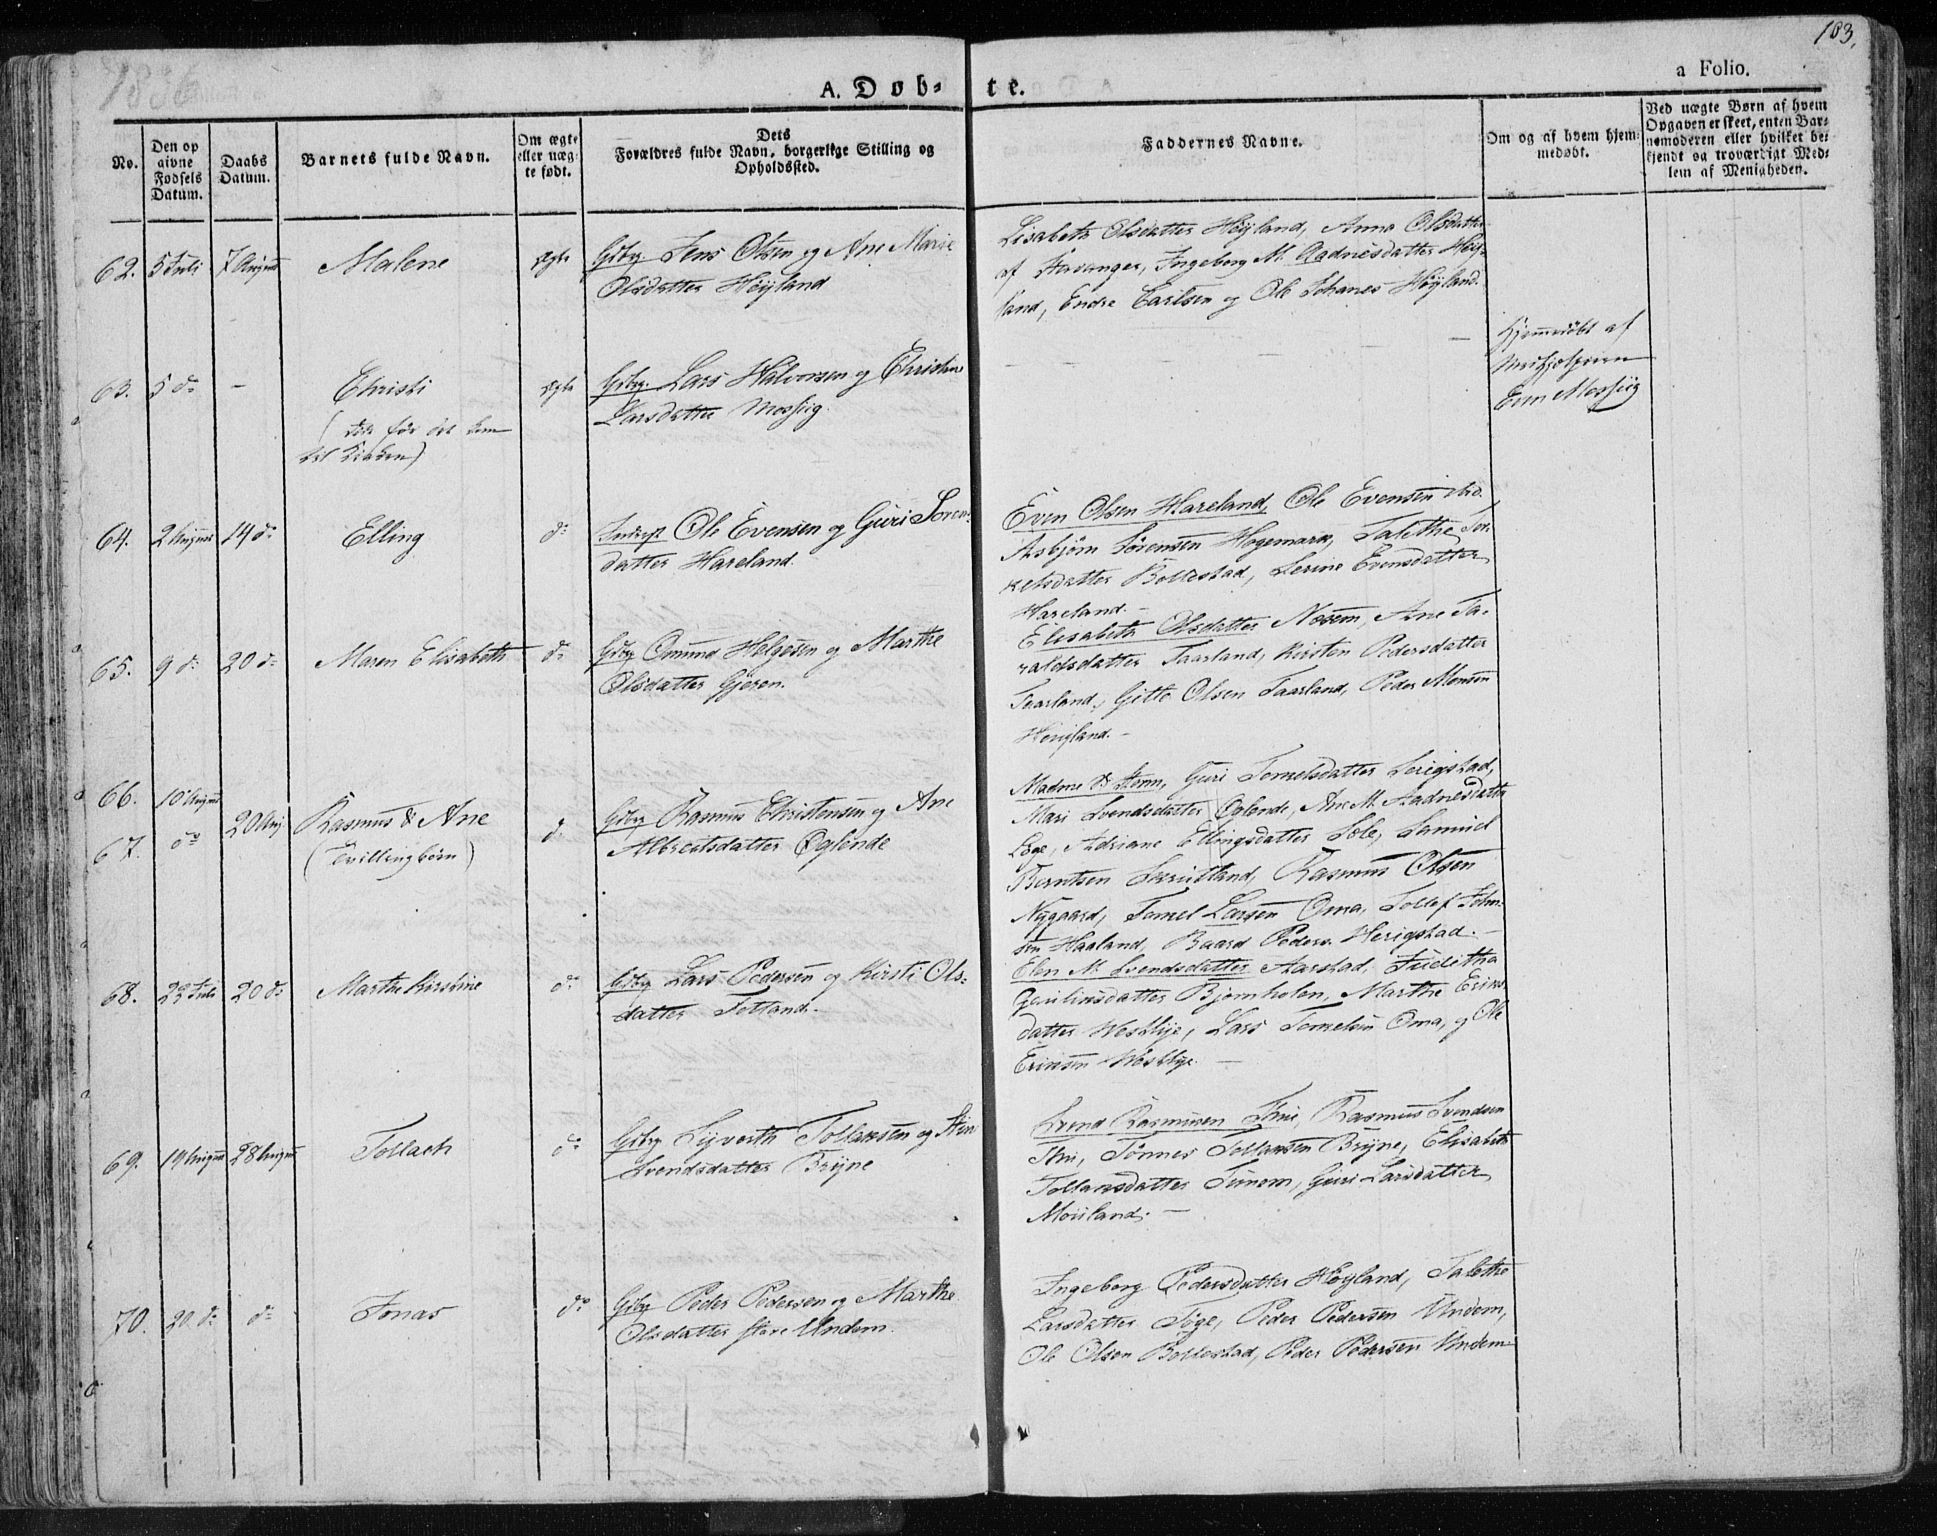 1836
183.
A. Døb-te.
a Folio.
No.
Den op
givne
Fødsels
Datum.
Daabs
Datum.
Barnets fulde Navn.
Om ægte
eller uæg-
te født.
Dets
Forældres fulde Navn, borgerlige Stilling og
Opholdssted.
Faddernes Navne.
Om og af hvem hjem-
medøbt.
Ved uægte Børn af hvem
Opgaven er skeet, enten Bar-
nemoderen eller hvilket be-
kjendt og troværdigt Med-
lem af Menigheden.
62. 5 Juli 7 August Malene ægte Gdbr Jens Olsen og Ane Marie
Olsdatter Høyland
Lisabeth Olsdatter Høyland, Anna Olsdatter
af Stavanger, Ingeborg M. Aadnesdatter Høy-
land, Endre Carlsen og Ole Johanes Høyland.
63. 5 do - Christi ægte Gdbr. Lars Halvorsen og Christine
(døde før det kom
til Kirken)
Larsdatter Mossiig.
Hjemmedøbt af
Even Mossiig
64. 2 August 14 do Elling do Inderst Ole Evensen og Guri Soren-
datter Hareland.
Even Olsen Hareland, Ole Evensen ibid.
Asbjørn Sørensen Hogemark, Talethe Tor-
kelsdatter Bollestad, Serine Evensdatter
Hareland.
65. 9 do 20 do Maren Elisabeth do Gdbr Omund Helgesen og Marthe
Olsdatter Gjeren.
Elisabeth Olsdatter Nosem, Ane Ta-
raldsdatter Taarland, Kirsten Pedersdatter
Taarland, Gitle Olsen Taarland, Peder Monsen
Høugland.
66. 10 August
67. do
20 Aug. Rasmus & Ane
(Tvillingbørn)
do Gdbr Rasmus Christensen og Ane
Albretsdatter Øglende
Madme Guri Tomelsdatter
Mari Svendsdatter Øglende, Ane M. Aadnesdatter
Løge, Adriane Ellingsdatter Sole, Samuel
Berntsen Rasmus Olsen
Nygaard, Tomel Larsen Oma, Tollef John-
sen Haaland, Baard Peders. Herigstad.
68. 22 Juli 20 do Marthe Kirstine do Gdbr Lars Pedersen og Kirsti Ols-
datter Totland.
Elen M. Svendsdatter Aarstad, Juditha
Bjørnholen, Marthe Eriks-
datter Westlye, Lars Tomelsen Oma, og Ole
Eriksen Westlye.
69. 19 August 28 August Tollach do Gdbr Syverth Tollaksen og
Svendsdatter Bryne
Svend Rasmusen Thu, Rasmus Svendsen
Thu, Tønnes Tollaksen Bryne, Elisabeth
Tollaksdatter Guri Larsdatter
70. 20 do do Jonas do Gdbr Peder Pedersen og Marthe
Olsdatter store Undem.
Ingeborg Pedersdatter Høyland, Talethe
Larsdatter Tøge, Peder Pedersen Undem,
Ole Olsen Bollestad, Peder Pedersen Undem.